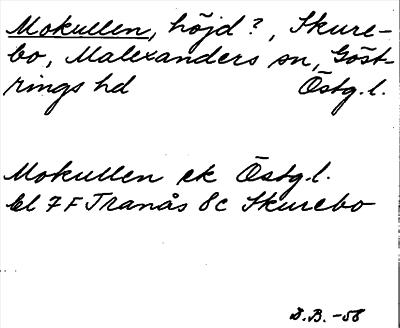 Mokullen, höjd?, Skure-
bo, Malexanders sn, Göst-
rings hd Östg.l.
Mokullen ek Östg.l.
bl 7F Tranås 8c Skurebo
B.B. -58